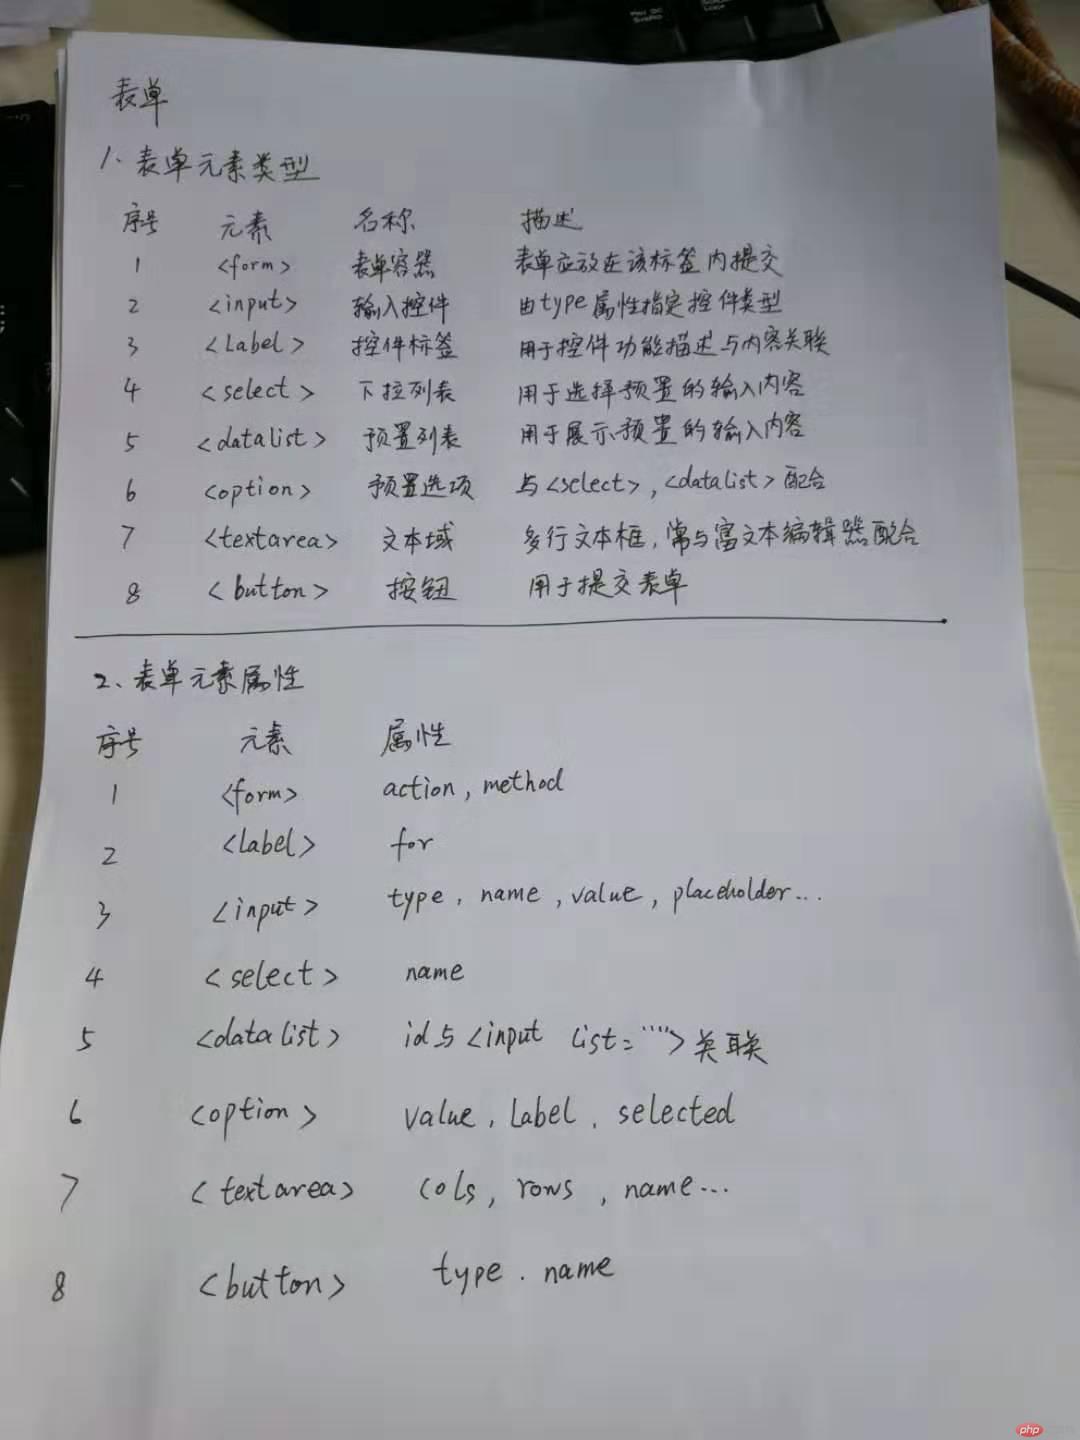 表单
1、表单元素类型
序号 元素 名称 描述
1 <form> 表单容器 表单应放在该标签内提交
2 <input> 输入控件 由type属性指定控件类型
3 <Label> 控件标签 用于控件功能描述与内容关联
4 <select> 下拉列表 用于选择预置的输入内容
5 <datalist> 预置列表 用于展示预置的输入内容
6 <option> 预置选项 与<select>,<datalist>配合
7 <textarea> 文本域 多行文本框,常与富文本编辑器配合
8 <button> 按钮 用于提交表单
2、表单元素属性
序号 元素 属性
1 <form> action, method
2 <label> for
3 <input> type, name, value, placeholder...
4 <select> name
5 <datalist> id与<input list="">关联
6 <option> value, Label, selected
7 <textarea> cols, rows, name...
8 <button> type. name
php